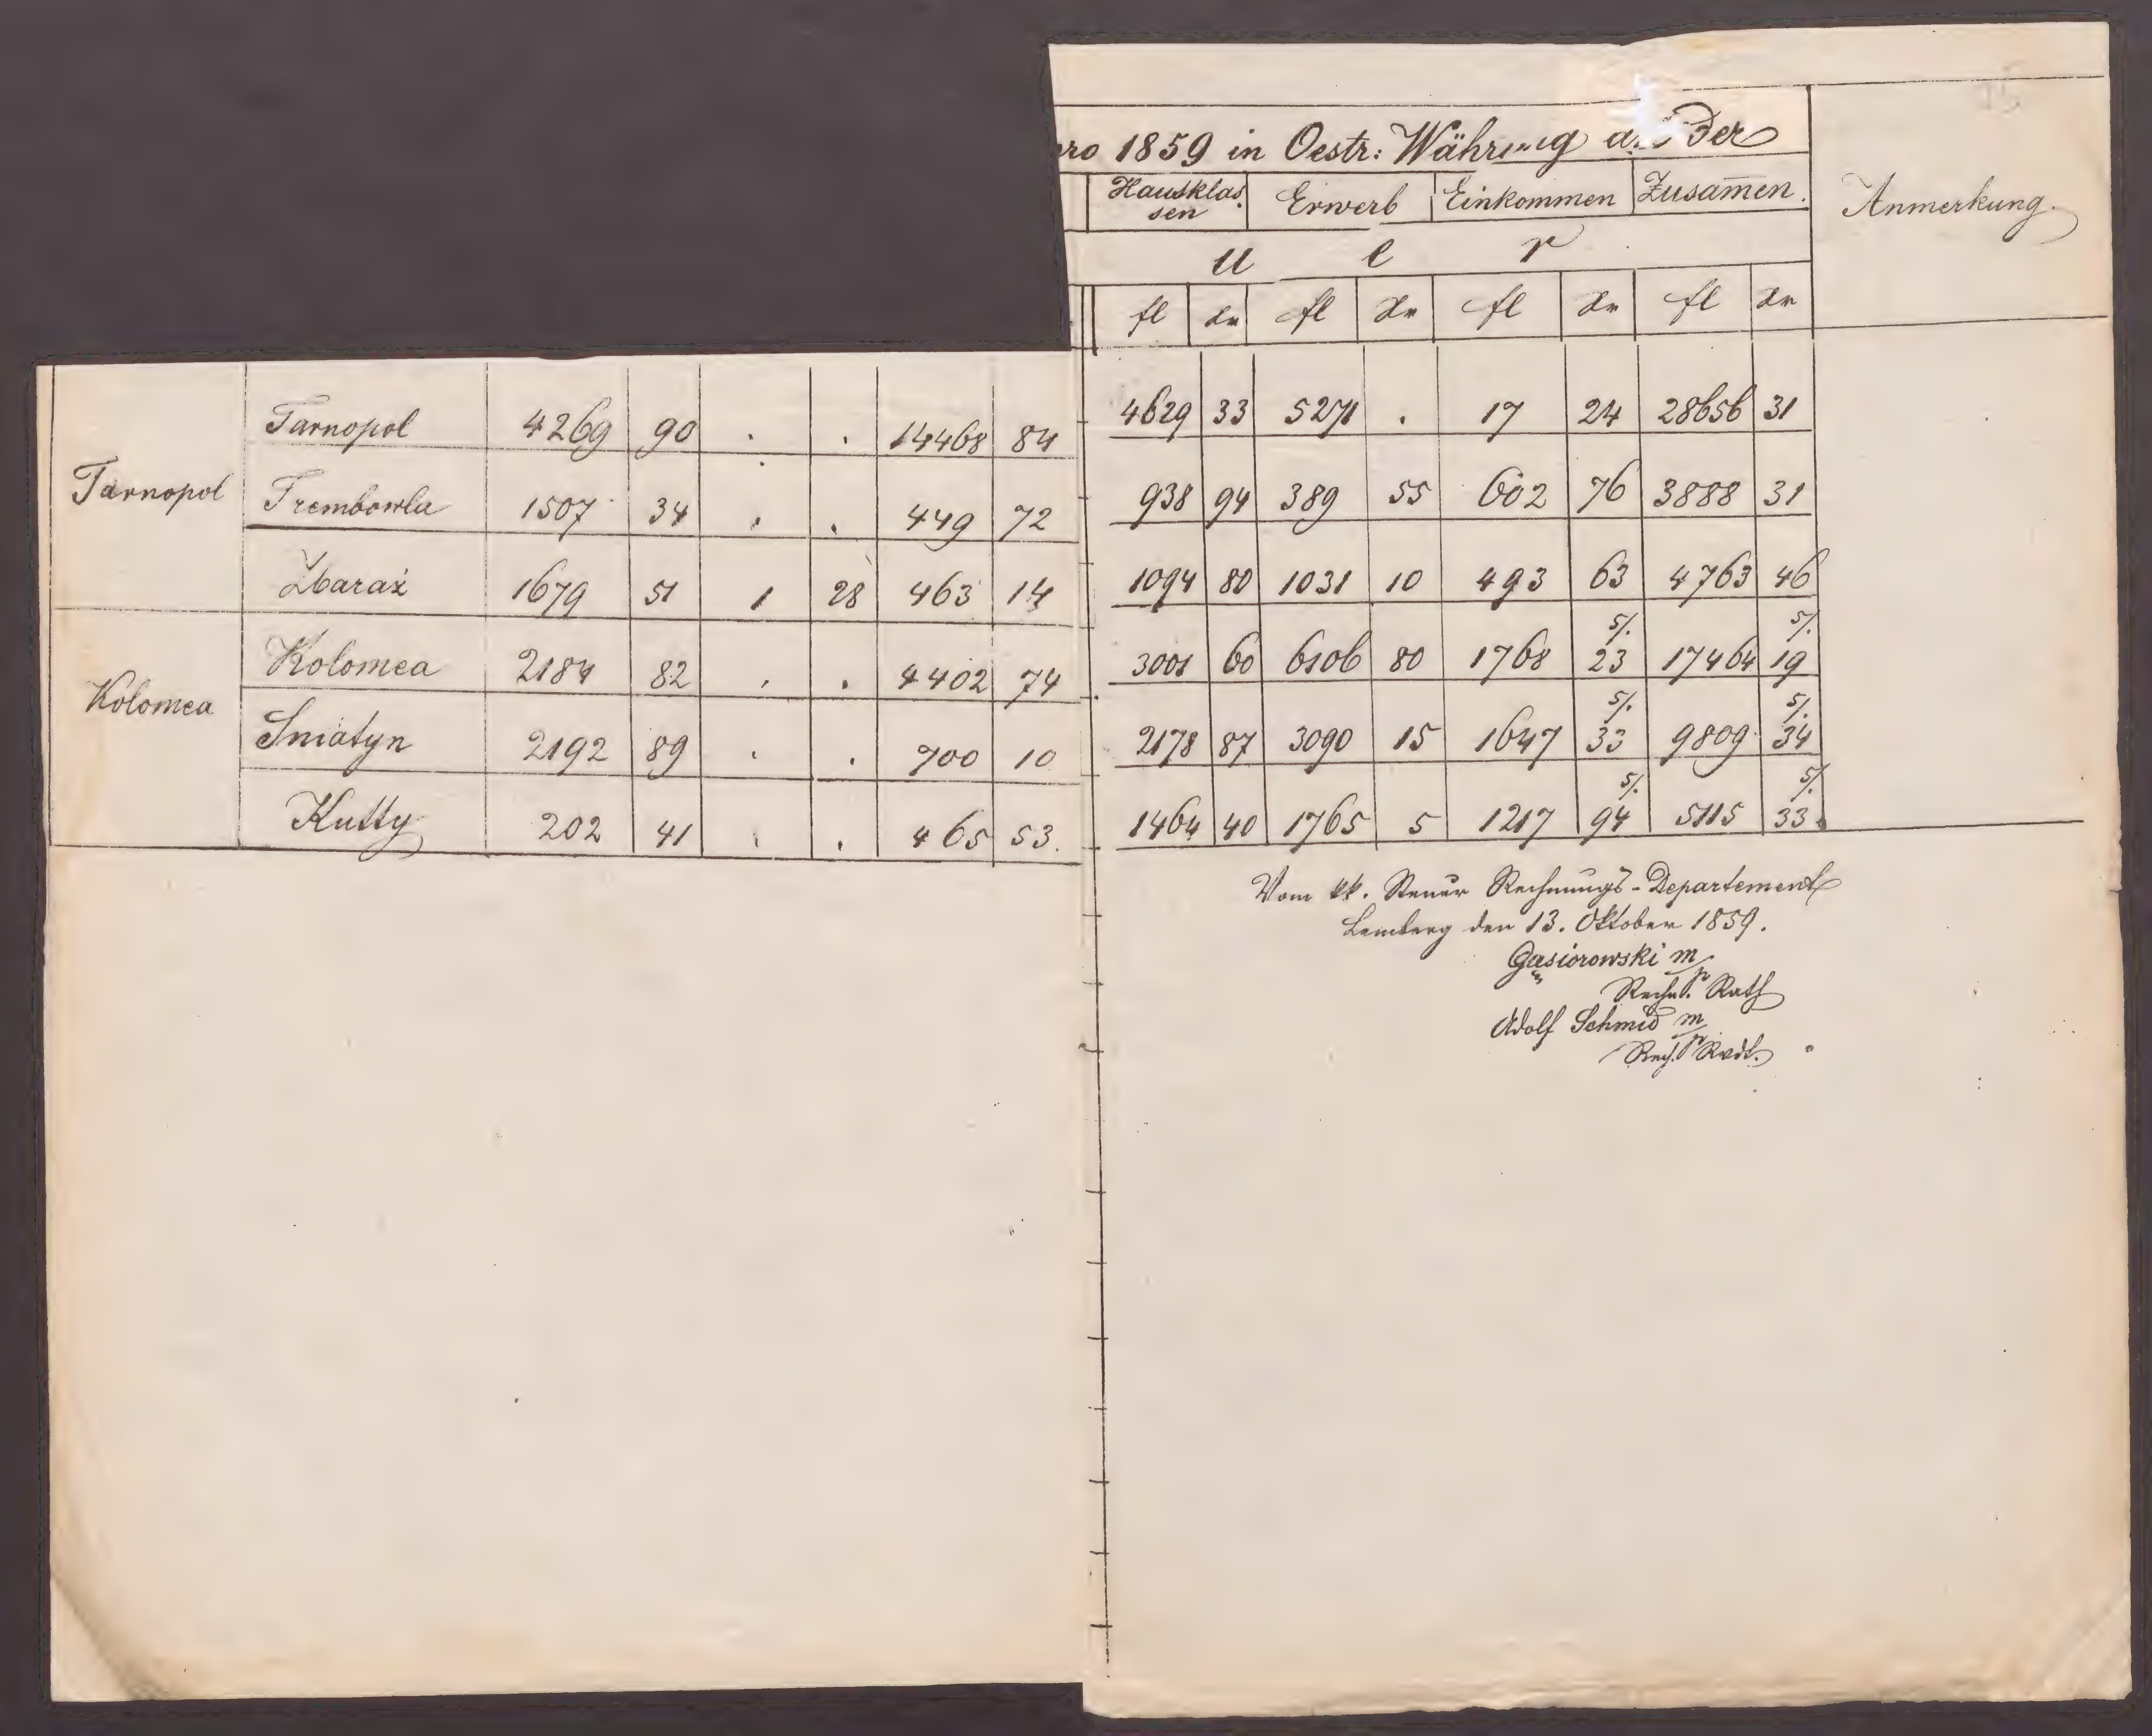 pro 1859 in Oestr: Währung aus der
Hausklas. Erwerb Einkommen Zusam̄en. Anmerkung.
sen
u e r
fl Xr fl Xr fl Xr fl Xr
Tarnopol Tarnopol 4269 90 . . 14468 84 4629 33 5271 . 17 24 28656 31
Trembowla 1507 34 . . 449 72 938 94 389 55 602 76 3888 31
Zbaraż 1679 51 1 28 463 14 1094 80 1031 10 493 63 4763 46
Kolomea Kolomea 2184 82 . . 4402 74 3001 60 6106 80 1768 23 5/. 17464 19 5/.
Sniatyn 2192 89 . . 700 10 2178 87 3090 15 1647 33 5/. 9809 34 5/.
Kutty 202 41 . . 465 53. 1464 40 1765 5 1217 94 5/. 5115 33 5/.
Vom kk. Steuer Rechnungs-Departement
Lemberg den 13. Oktober 1859.
Gąsiorowski m/p
Rechn. Rath
Adolf Schmid m/p
Rech.